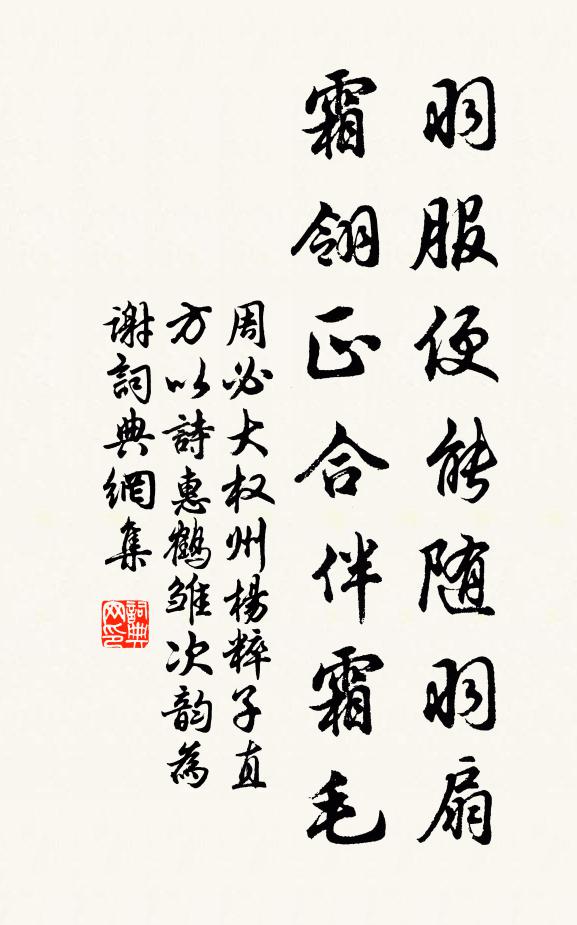 羽服便能随羽扇
霜翎正合伴霜毛
周必大权州楊粹子直
方以詩惠鶴雏次韵為
谢詞典網集
詞典网印